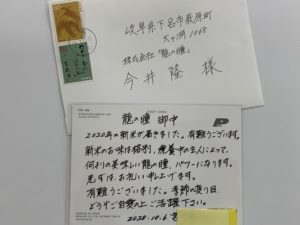 岐阜県下呂市萩原町
大ヶ洞1068
株式会社「龍の瞳」
今井 隆 様
龍の瞳 御中
2020年の新米が届きました。有難うございます。
新米のお味は格別、療養中の主人にとって、
何よりの美味しい龍の瞳、パワーになります。
先ずは、お礼い申し上げます。
有難うございました。季節の変り目、
どうぞご自愛の上ご活躍下さい。
2020.10.6